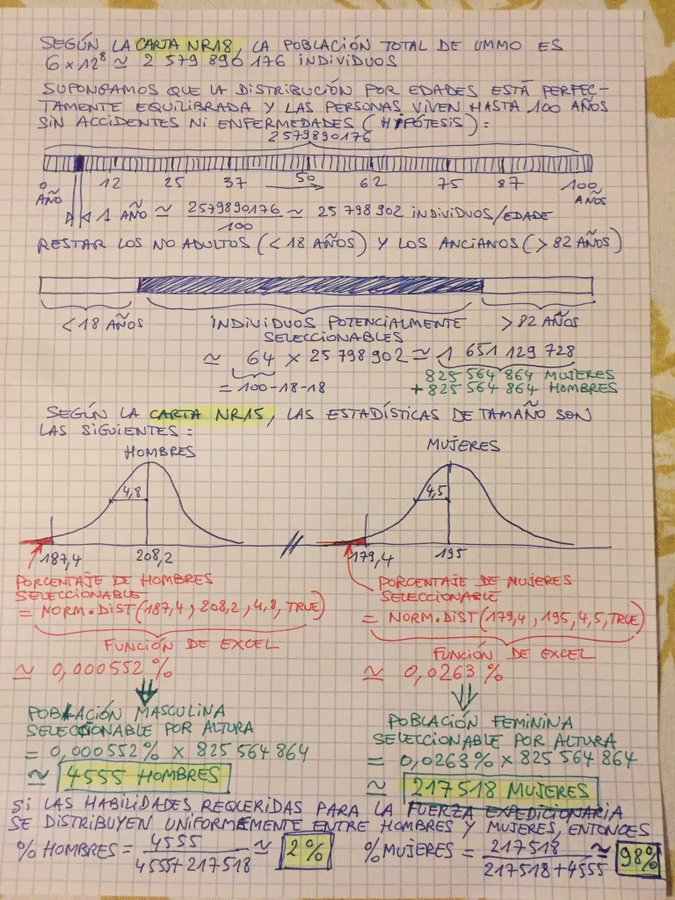 SEGÚN LA CARTA NR18, LA POBLACIÓN TOTAL DE UMMO ES
6 × 12⁸ ≃ 2 579 890 176 INDIVIDUOS
SUPONGAMOS QUE LA DISTRIBUCIÓN POR EDADES ESTÁ PERFEC-
TAMENTE EQUILIBRADA Y LAS PERSONAS VIVEN HASTA 100 AÑOS
SIN ACCIDENTES NI ENFERMEDADES (HIPÓTESIS):
2579890176
0 AÑO 12 25 37 50 62 75 87 100 AÑOS
1 AÑO ≃ 2579890176 / 100 ≃ 25 798 902 INDIVIDUOS/EDADE
RESTAR LOS NO ADULTOS (< 18 AÑOS) Y LOS ANCIANOS (> 82 AÑOS)
< 18 AÑOS INDIVIDUOS POTENCIALMENTE SELECCIONABLES > 82 AÑOS
≃ 64 × 25 798 902 ≃ 1 651 129 728
= 100-18-18
825 564 864 MUJERES
+ 825 564 864 HOMBRES
SEGÚN LA CARTA NR15, LAS ESTADÍSTICAS DE TAMAÑO SON
LAS SIGUIENTES:
HOMBRES
4,8
187,4 208,2
PORCENTAJE DE HOMBRES
SELECCIONABLE
= NORM.DIST(187,4, 208,2, 4,8, TRUE)
FUNCIÓN DE EXCEL
≃ 0,000552 %
POBLACIÓN MASCULINA
SELECCIONABLE POR ALTURA
= 0,000552% × 825 564 864
≃ 4555 HOMBRES
MUJERES
4,5
179,4 195
PORCENTAJE DE MUJERES
SELECCIONABLE
= NORM.DIST(179,4, 195, 4,5, TRUE)
FUNCIÓN DE EXCEL
≃ 0,0263 %
POBLACIÓN FEMININA
SELECCIONABLE POR ALTURA
= 0,0263% × 825 564 864
≃ 217518 MUJERES
SI LAS HABILIDADES REQUERIDAS PARA LA FUERZA EXPEDICIONARIA
SE DISTRIBUYEN UNIFORMEMENTE ENTRE HOMBRES Y MUJERES, ENTONCES
% HOMBRES = 4555 / 4555+217518 ≃ 2%
% MUJERES = 217518 / 217518+4555 ≃ 98%